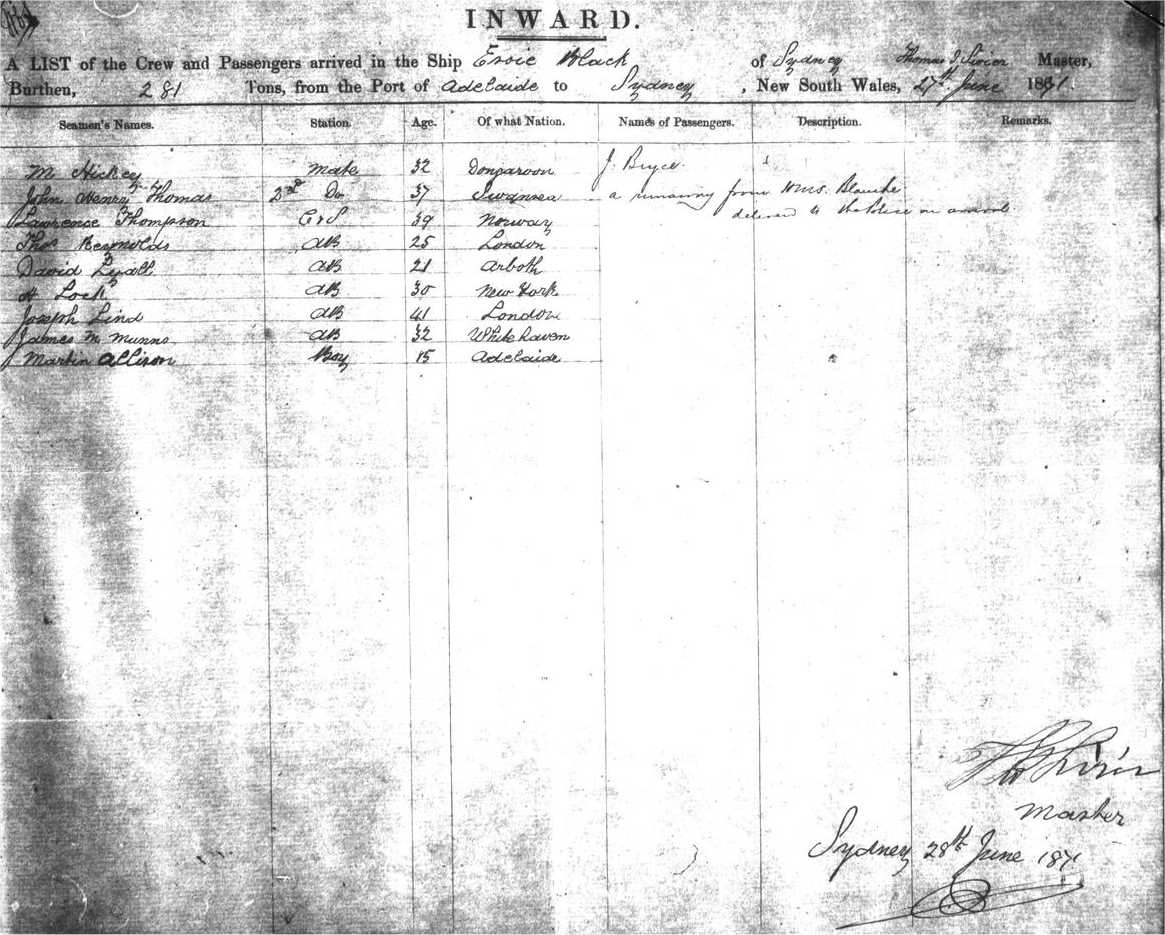 INWARD.
A LIST of the Crew and Passengers arrived in the Ship Essie Black of Sydney Thomas J Sivier Master,
Burthen, 281 Tons, from the Port of Adelaide to Sydney, New South Wales, 27th June 1871.
Seamen's Names. Station. Age. Of what Nation. Names of Passengers. Description. Remarks.
M Hickey Mate 32 Dongaroon J. Bryce
John Henry Thomas 2nd Do 37 Swansea a runaway from HMS. Blanche
Lawrence Thompson C & S 39 Norway delivered to the Police on arrival
Thos Reynolds AB 25 London
David Lyall AB 21 Arboth
H Lock AB 30 New York
Joseph Lind AB 41 London
James M Munns AB 32 Whitehaven
Martin Allison Boy 15 Adelaide
Master
Sydney 28th June 1871